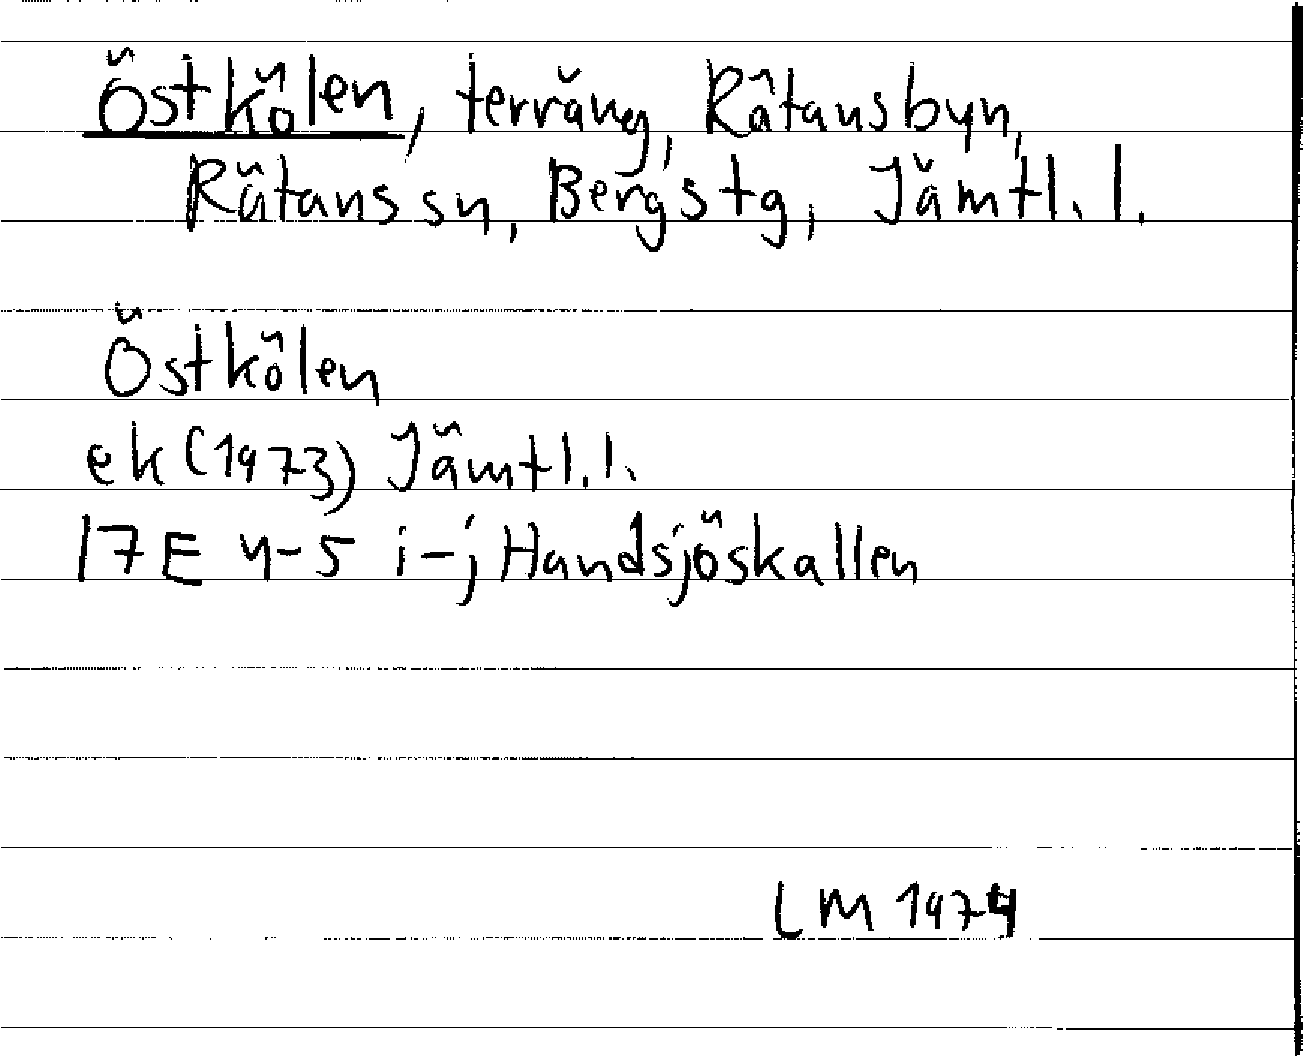 Östkölen, terräng, Rätansbyn,
Rätans sn, Bergs tg, Jämtl. l.
Östkölen
ek (1973) Jämtl. l.
17E 4-5 i-j Handsjöskallen
LM 1974